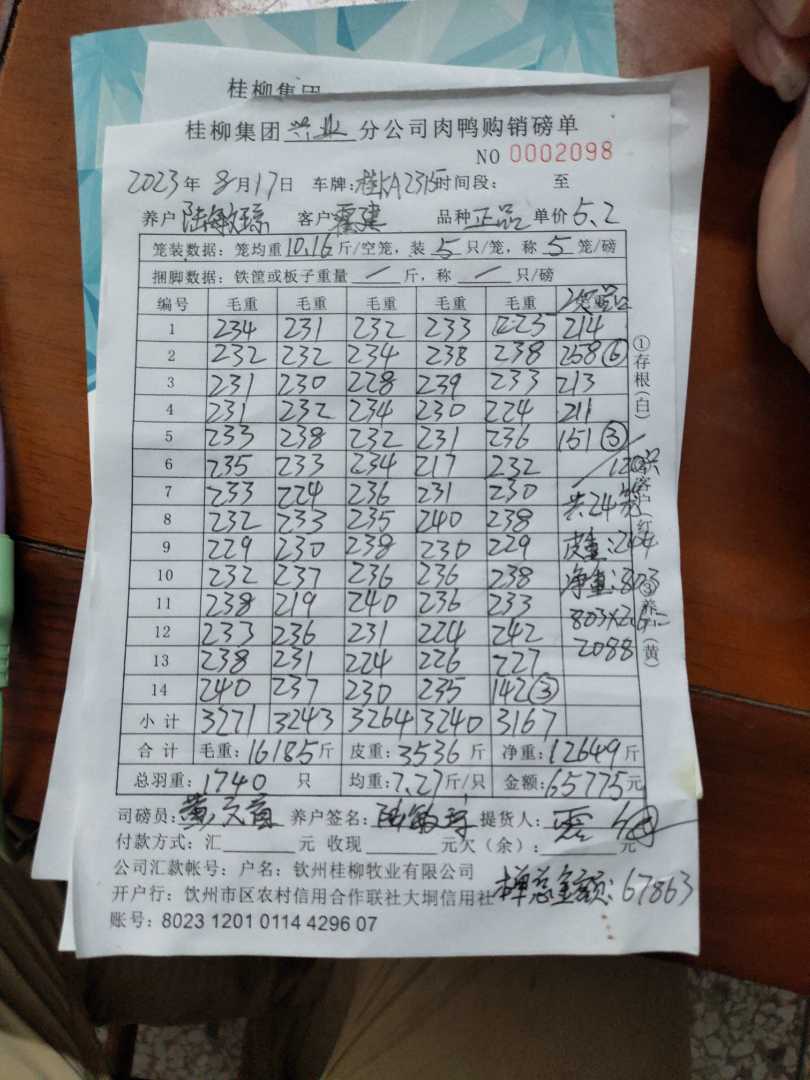 桂柳集团
桂柳集团兴业分公司肉鸭购销磅单
NO 0002098
2023年8月17日 车牌:桂KA2315时间段: 至
养户陆敏琼 客户霍建 品种正品 单价5.2
笼装数据:笼均重10.16斤/空笼,装5只/笼,称5笼/磅
捆脚数据:铁筐或板子重量/斤,称/只/磅
编号 毛重 毛重 毛重 毛重 毛重
1 234 231 232 233 225 214
2 232 232 234 238 238 258⑥
3 231 230 228 239 233 213
4 231 232 234 230 224 211
5 233 238 232 231 236 151③
6 235 233 234 217 232
7 233 224 236 231 230 共24笼
8 232 233 235 240 238
9 229 230 238 230 229 皮重:244
10 232 237 236 236 238 净重:803
11 238 219 240 236 233 803×2.6=
12 233 236 231 224 242 2088
13 238 231 224 226 227
14 240 237 230 235 142③
小计 3271 3243 3264 3240 3167
合计 毛重:16185斤 皮重:3536斤 净重:12649斤
总羽重:1740 只 均重:7.27斤/只 金额:65775元
司磅员: 养户签名: 提货人:
付款方式:汇 元 收现 元欠(余): 元
公司汇款帐号:户名:钦州桂柳牧业有限公司
开户行:饮州市区农村信用合作联社大垌信用社
本单总金额:67863
账号:8023 1201 0114 4296 07
①存根(白)
客户(红)
③养户(黄)